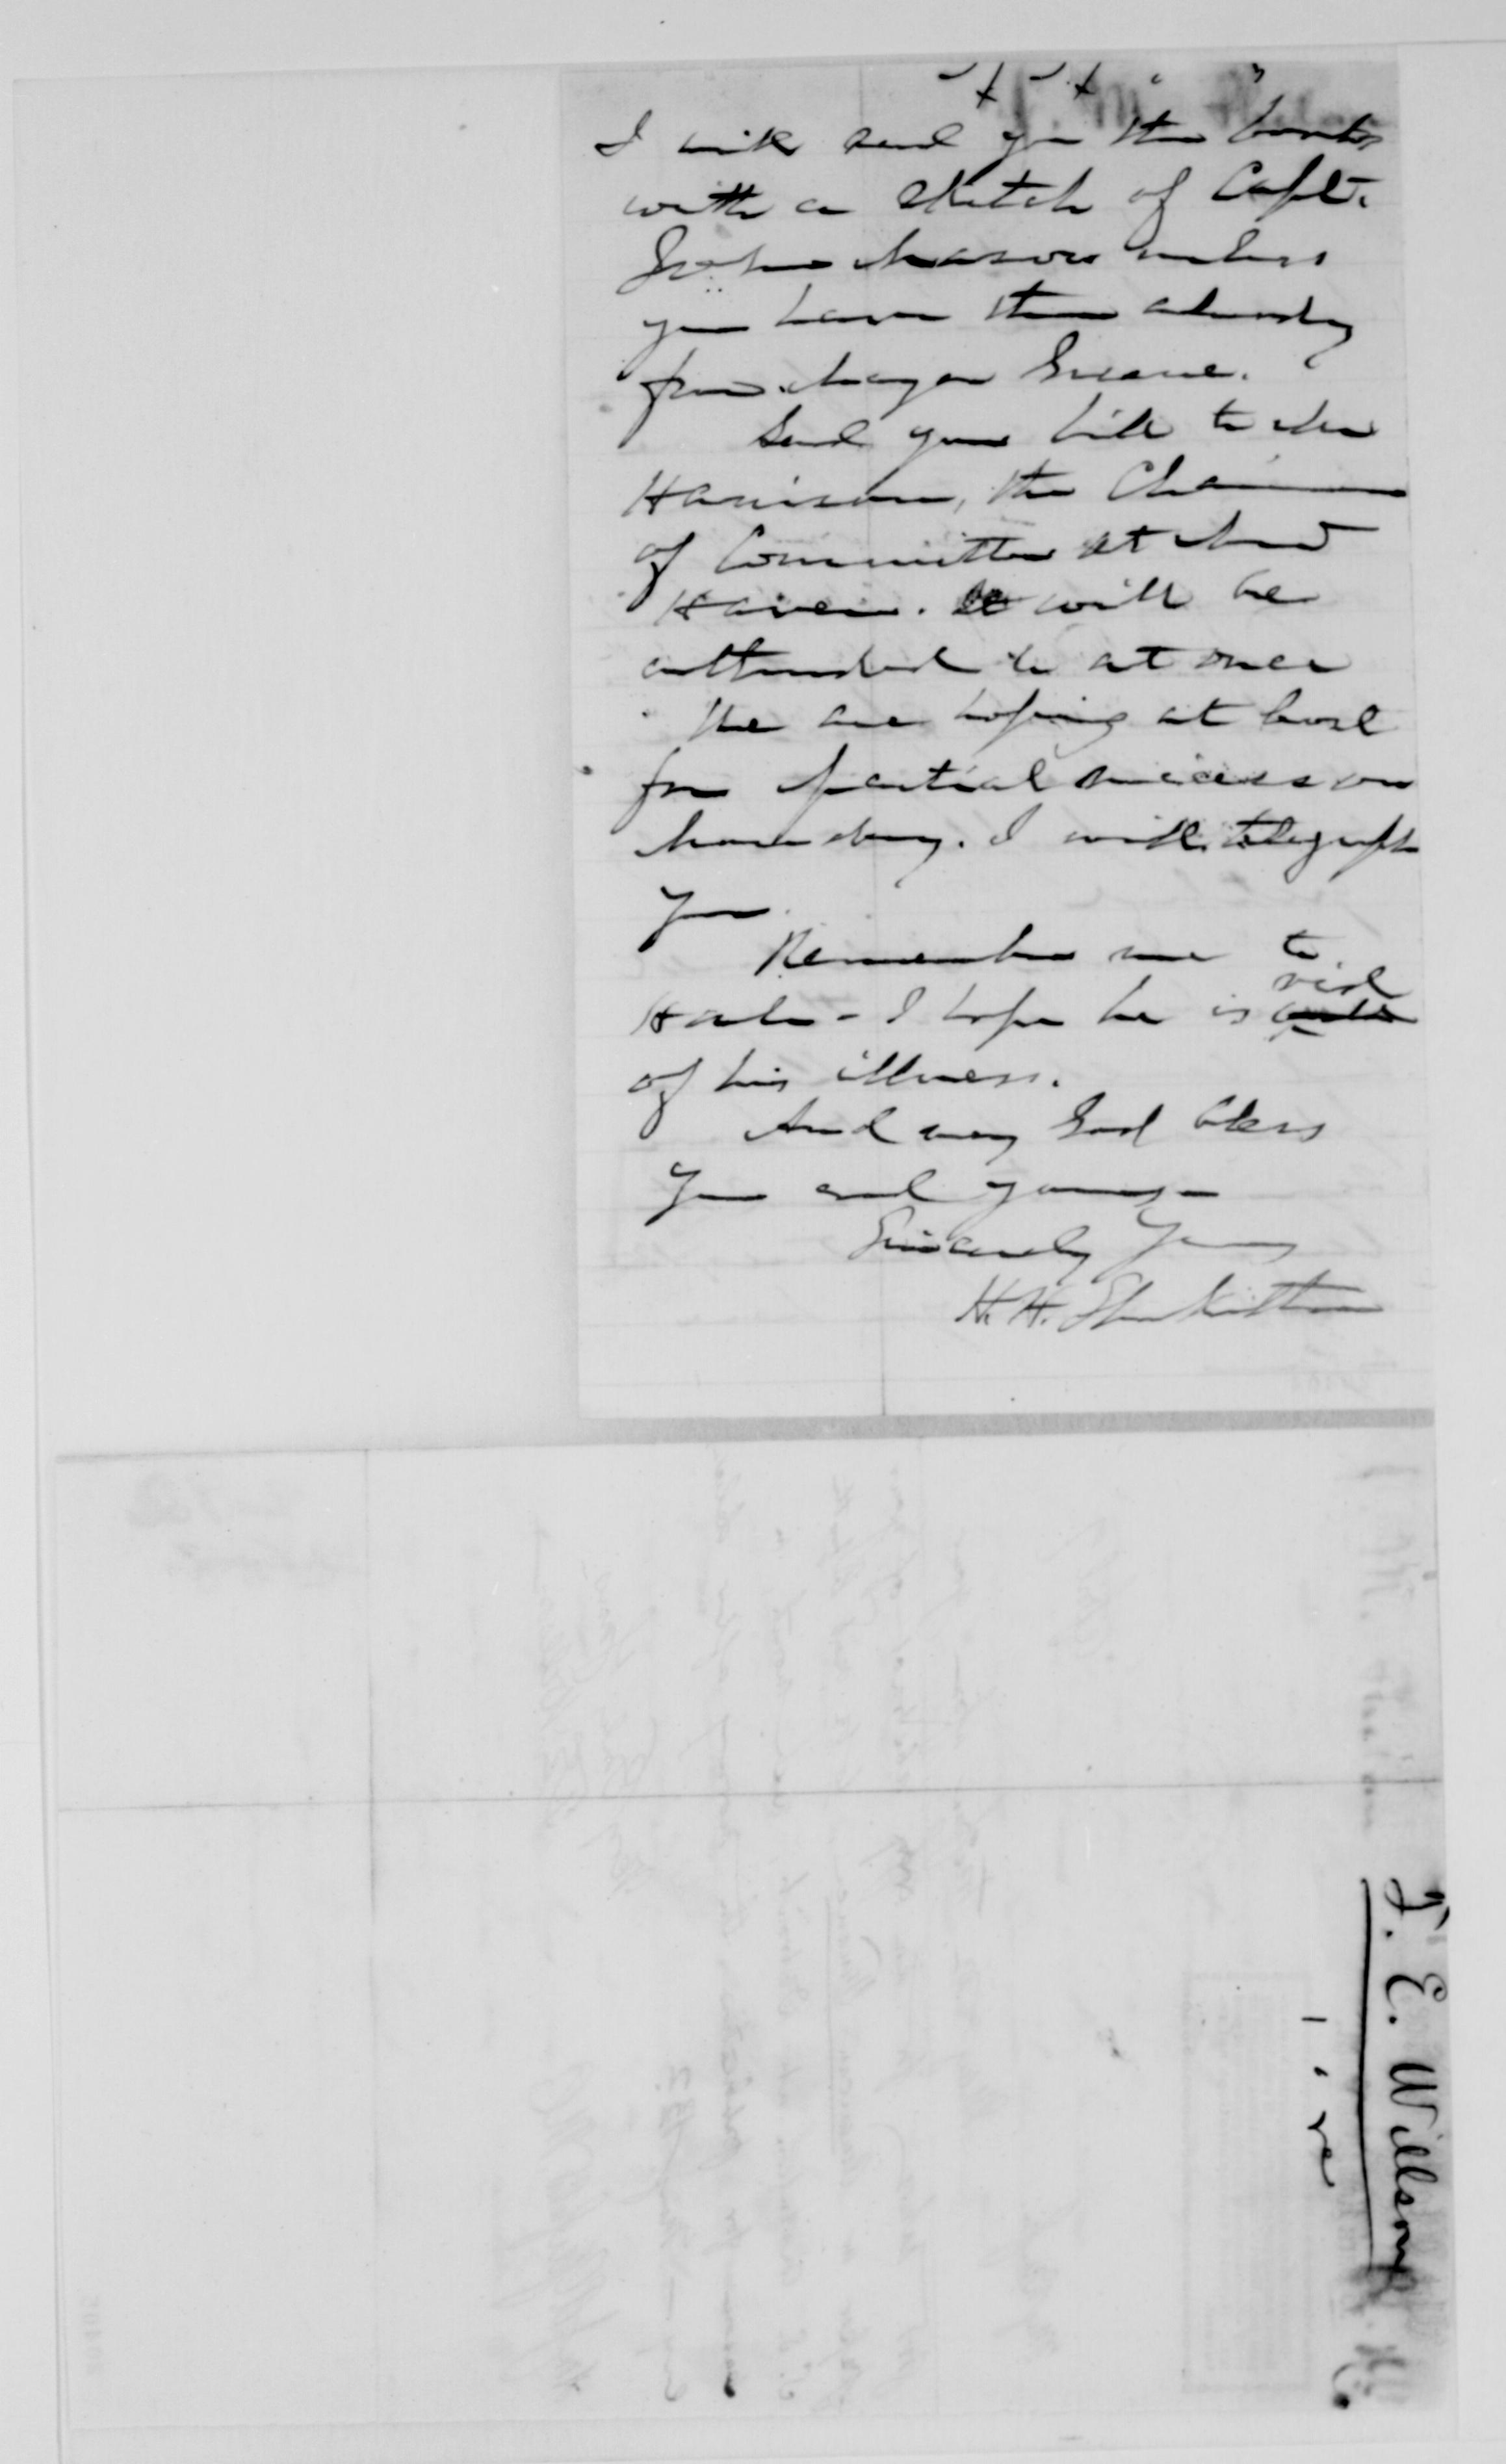 I will send you the books
with a sketch of Capt.
John Mason unless
you have them already
from Mayor Greene.
Send your bill to Mr
Harrison, the Chairman
of Committee at New
Haven. It will be
attended to at once
We are hoping at least
for partial success on
Monday. I will telegraph
you.
Remember me to
Hale - I hope he is rid
of his illness.
And may God bless
you and yours -
Sincerely Yours
H. H.
T. E. Willson